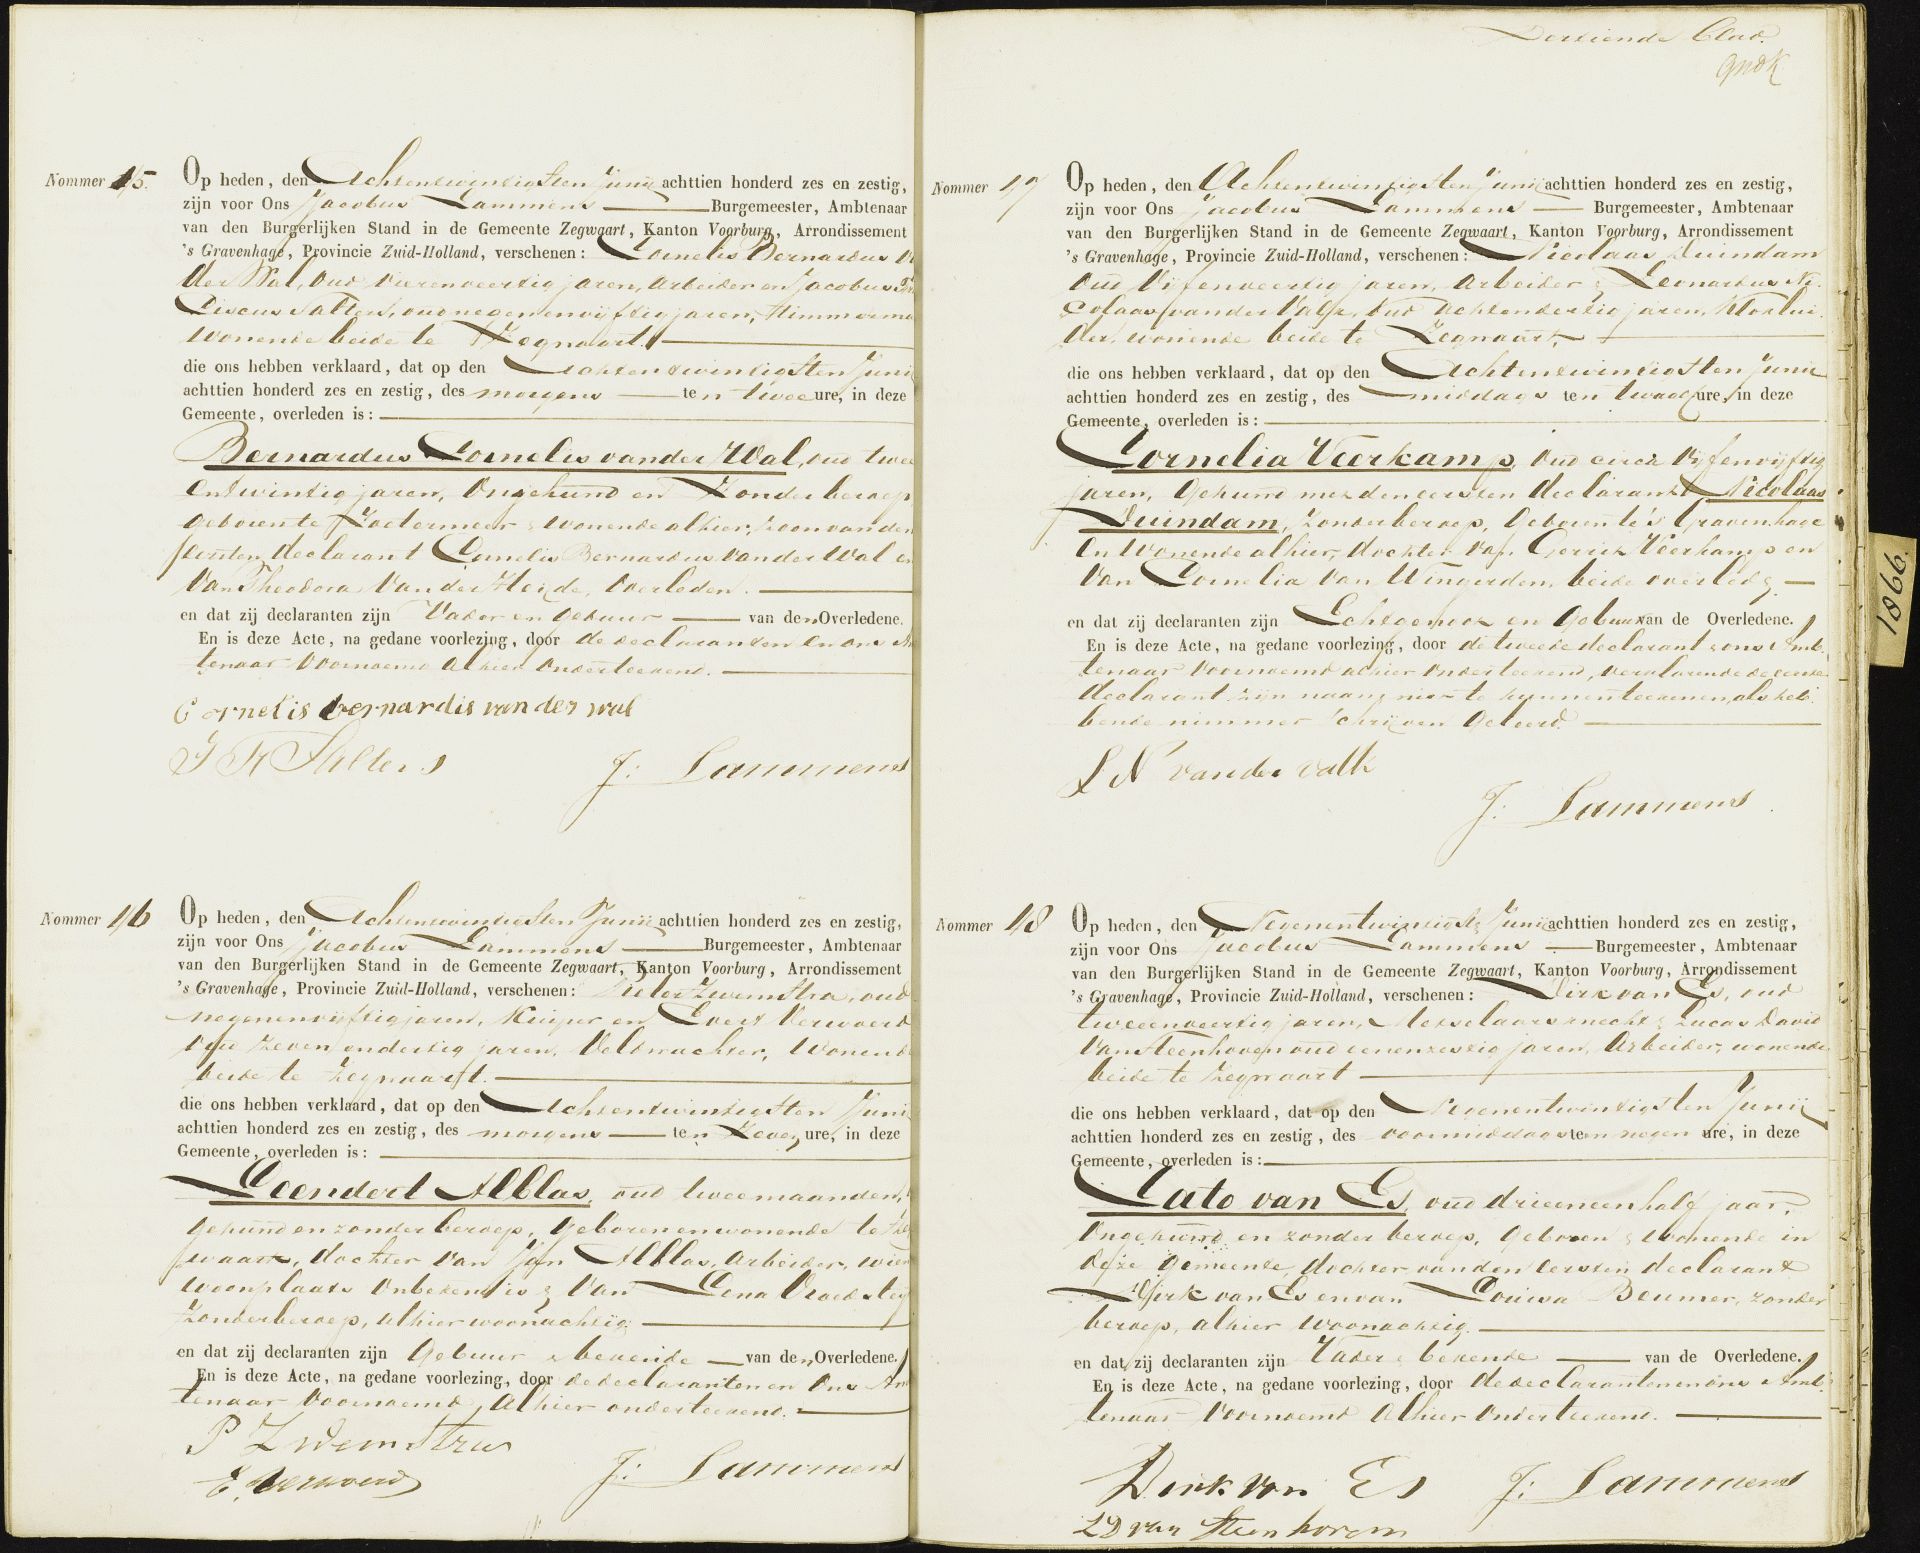 Nommer 45.
Op heden, den Achtentwintigsten Junij achttien honderd zes en zestig,
zijn voor Ons Jacobus Lammens Burgemeester, Ambtenaar
van den Burgerlijken Stand in de Gemeente Zegwaart, Kanton Voorburg, Arrondissement
's Gravenhage, Provincie Zuid-Holland, verschenen: Cornelis Bernardus
der Wal, oud vierenveertig jaren, arbeider en Jacobus
ciscus Salters, oud negenenvijftig jaren, timmerma
wonende beide te Zegwaart.
die ons hebben verklaard, dat op den Achtentwintigsten Junij
achttien honderd zes en zestig, des morgens ten twee ure, in deze
Gemeente, overleden is:
Bernardus Cornelis van der Wal, oud twee
entwintig jaren, Ongehuwd en Zonder beroep
geboren te Zoetermeer & wonende alhier, zoon van den
eersten declarant Cornelis Bernardus van der Wal en
van Theodora van der Heide, Overleden.
en dat zij declaranten zijn Vader en gebuur van den Overledene.
En is deze Acte, na gedane voorlezing, door de declaranten en ons Am
tenaar voornoemd alhier onderteekend.
Cornelis bernardis van der wal
J F Salters J: Lammens
Nommer 46
Op heden, den Achtentwintigsten Junij achttien honderd zes en zestig,
zijn voor Ons Jacobus Lammens Burgemeester, Ambtenaar
van den Burgerlijken Stand in de Gemeente Zegwaart, Kanton Voorburg, Arrondissement
's Gravenhage, Provincie Zuid-Holland, verschenen: Pieter Zwemstra, oud
negenenvijftig jaren, Kuiper en Evert Verwoerd
oud zeven endertig jaren, Veldwachter, Wonende
beide te Zegwaart.
die ons hebben verklaard, dat op den Achtentwintigsten Junij
achttien honderd zes en zestig, des morgens ten Zeven ure, in deze
Gemeente, overleden is:
Leendert Alblas, oud twee maanden,
gehuwd en zonder beroep, geboren en wonende te Zeg
waart, dochter van Jan Alblas, arbeider, wiens
woonplaats onbekend is & van Lena
zonder beroep, alhier woonachtig
en dat zij declaranten zijn Gebuur & bekende van den Overledene.
En is deze Acte, na gedane voorlezing, door de declaranten en Ons Am
tenaar voornoemd, alhier onderteekend.
P Zwemstra
E. Verwoerd J: Lammens
Dertiende Blad.
Nommer 47
Op heden, den Achtentwintigsten Junij achttien honderd zes en zestig,
zijn voor Ons Jacobus Lammens Burgemeester, Ambtenaar
van den Burgerlijken Stand in de Gemeente Zegwaart, Kanton Voorburg, Arrondissement
's Gravenhage, Provincie Zuid-Holland, verschenen: Nicolaas Duindam
oud Vijfenveertig jaren, Arbeider & Leonardus Ni
colaas van der Valk, oud Achtendertig jaren,
wonende beide te Zegwaart,
die ons hebben verklaard, dat op den Achtentwintigsten Junij
achttien honderd zes en zestig, des middags ten twaalf ure, in deze
Gemeente, overleden is:
Cornelia Veerkamp, Oud circa Vijfenvijftig
jaren, Gehuwd met den eersten declarant Nicolaas
Duindam, zonder beroep, Geboren te 's Gravenhage
en Wonende alhier, dochter van Gerrit Veerkamp en
van Cornelia van Wingerden, beide overleden.
en dat zij declaranten zijn Echtgenoot en Gebuur van de Overledene.
En is deze Acte, na gedane voorlezing, door de tweede declarant & ons Amb
tenaar voornoemd alhier onderteekend, verklarende de eerste
declarant zijn naam niet te kunnen teekenen, als heb
bende nimmer schrijven Geleerd.
L N van der valk
J: Lammens
Nommer 48
Op heden, den Negenentwintigste Junij achttien honderd zes en zestig,
zijn voor Ons Jacobus Lammens Burgemeester, Ambtenaar
van den Burgerlijken Stand in de Gemeente Zegwaart, Kanton Voorburg, Arrondissement
's Gravenhage, Provincie Zuid-Holland, verschenen: Dirk van Es, oud
tweeenveertig jaren, Metselaarsknecht & Lucas David
van Steenhoven oud eenenzestig jaren, Arbeider, wonende
beide te Zegwaart
die ons hebben verklaard, dat op den Negenentwintigsten Junij
achttien honderd zes en zestig, des voormiddags ten negen ure, in deze
Gemeente, overleden is:
Cato van Es, oud drieeneenhalf jaar,
Ongehuwd en zonder beroep, Geboren & wonende in
deze Gemeente, dochter van den eersten declarant
Dirk van Es en van Louisa Beumer, zonder
beroep, alhier woonachtig.
en dat zij declaranten zijn Vader & bekende van de Overledene.
En is deze Acte, na gedane voorlezing, door de declaranten en ons Amb
tenaar voornoemd alhier onderteekend.
Dirk van Es J: Lammens
L D van Steenhoven
1866.